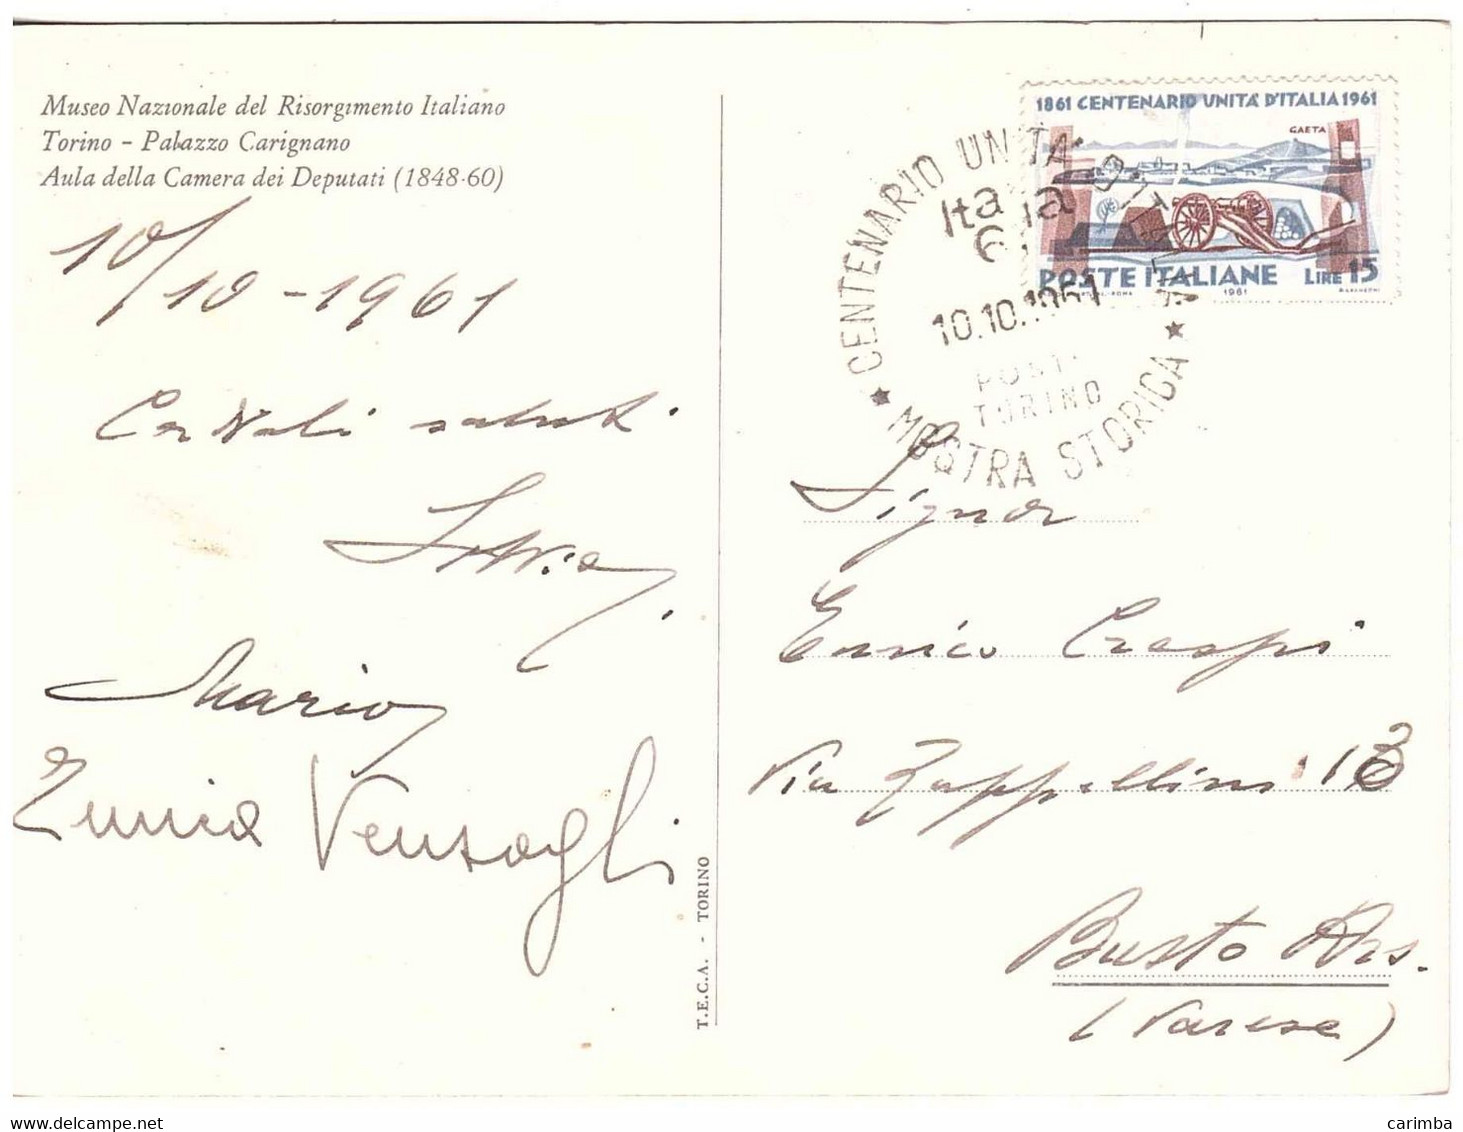 Museo Nazionale del Risorgimento Italiano
Torino - Palazzo Carignano
Aula della Camera dei Deputati (1848-60)
10/10-1961
Cordiali saluti.
Mario
Ennia Versogli
T.E.C.A. - TORINO
1861 CENTENARIO UNITÀ D'ITALIA 1961
GAETA
POSTE ITALIANE LIRE 15
1961
★ CENTENARIO UNITA' D'ITALIA ★
Italia
61
10.10.1961
TORINO
MOSTRA STORICA
Signor
Enrico Crespi
Via Zappellini 13
Busto Ars.
(Varese)
carimba